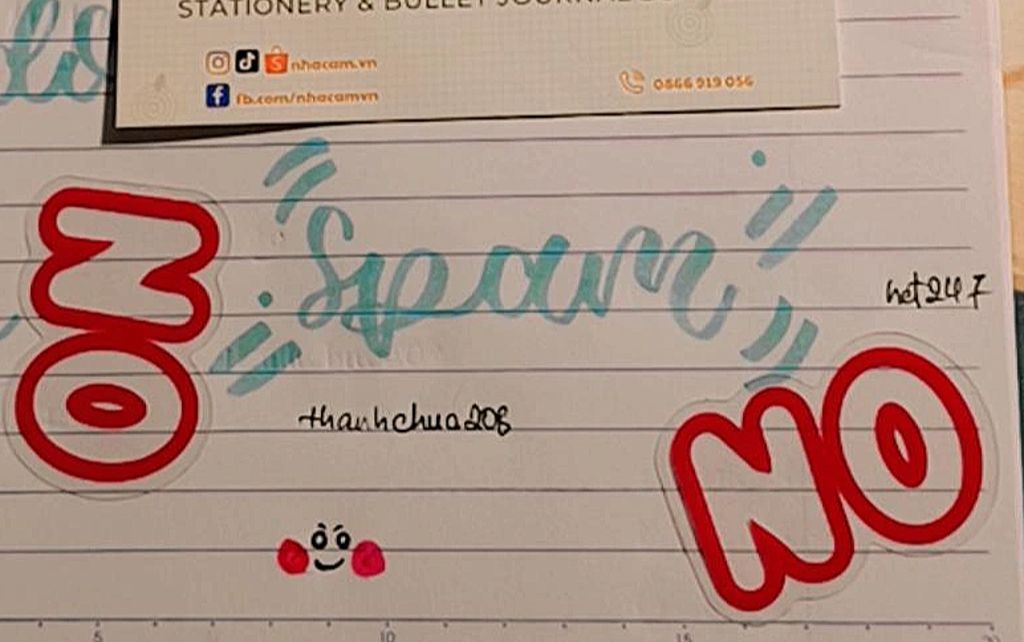 STATIONERY & BULLET JOURNAL
nhacam.vn
fb.com/nhacamvn
0866 919 056
Spam
het247
NO
thanhchua208
NO
5
10
15